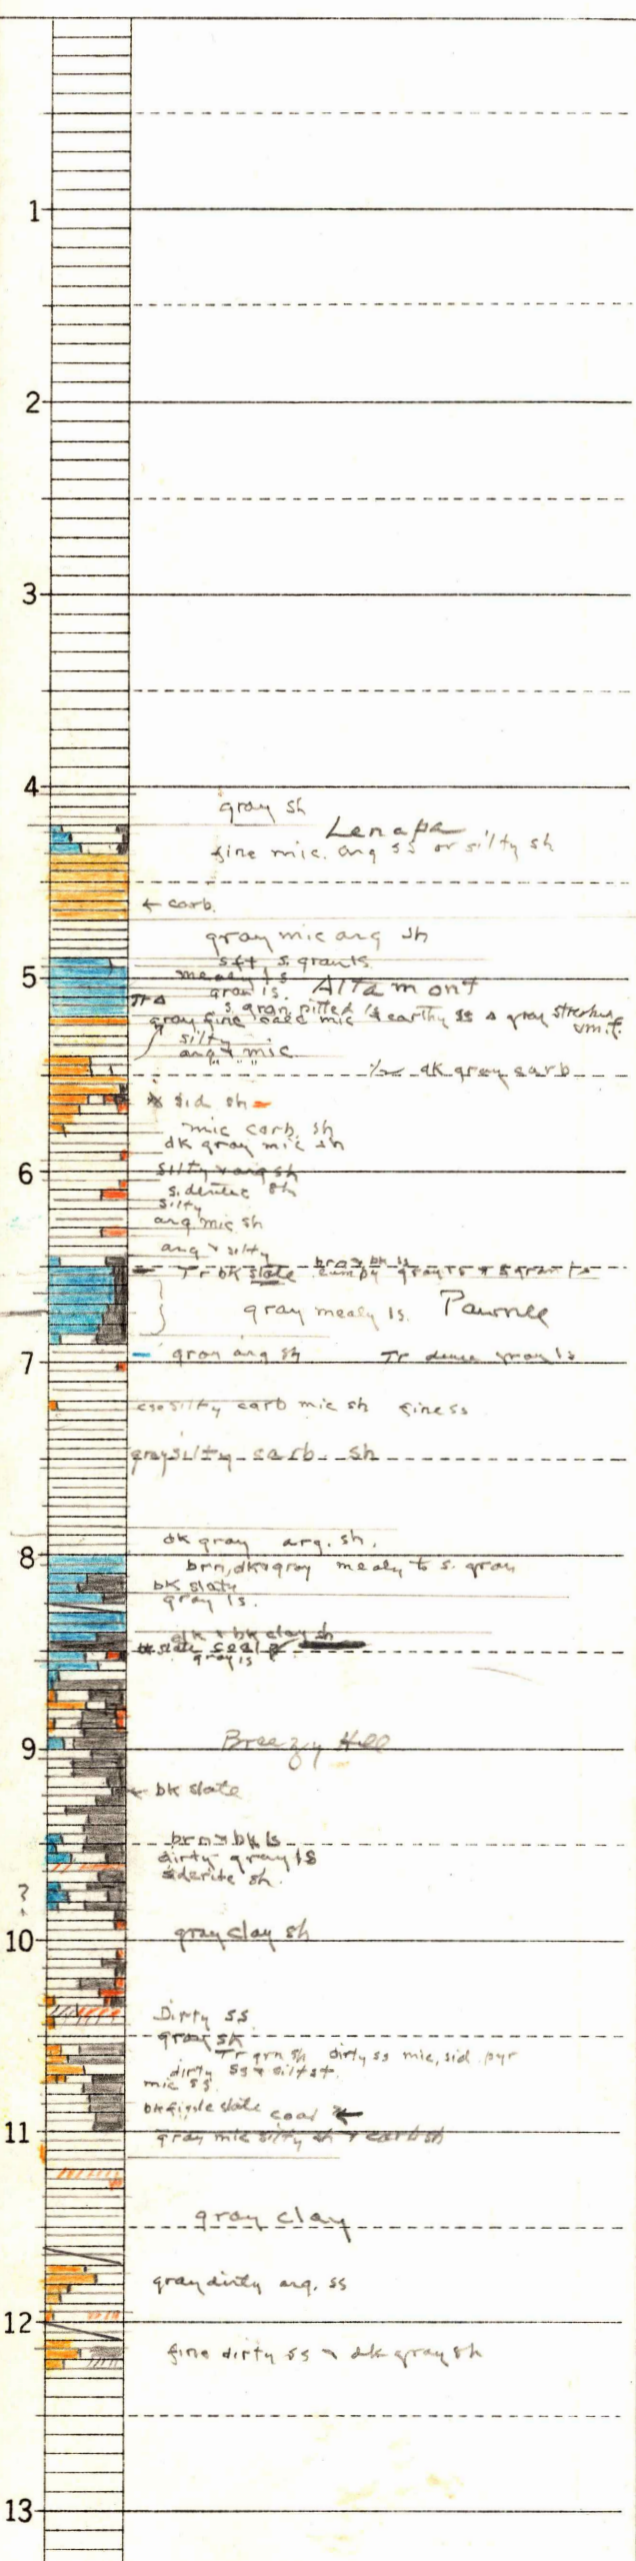 1
2
3
4
gray sh
Lenapa
fine mic. arg ss or silty sh
← carb.
gray mic arg sh
sft s. gran ls
mealy ls
5
gran ls. Altamont
s. gran pitted ls & earthy
gray fine calc mic
silty
arg & mic
dk gray carb
sid sh
mic carb. sh
dk gray mic sh
6
silty & arg sh
sideritic sh
silty
arg mic sh
arg & silty
brn & bk ls
Tr bk slate
gray mealy ls. Pawnee
7
gray arg sh Tr dense gray ls
silty carb mic sh fine ss
gray silty carb sh
dk gray arg. sh.
8
brn, dk & gray mealy to s. gran
bk slaty
gray ls.
dk & bk clay sh
bk slate coal
gray ls
9
Breezy Hill
← bk slate
brn & bk ls
dirty gray ls
siderite sh.
?
10
gray clay sh
Dirty ss
gray sh
Tr grn sh dirty ss mic, sid. pyr
dirty ss & siltst.
mic ss.
bk fissle slate coal ←
11
gray mic silty sh & carb sh
gray clay
gray dirty arg. ss
12
fine dirty ss & dk gray sh
13